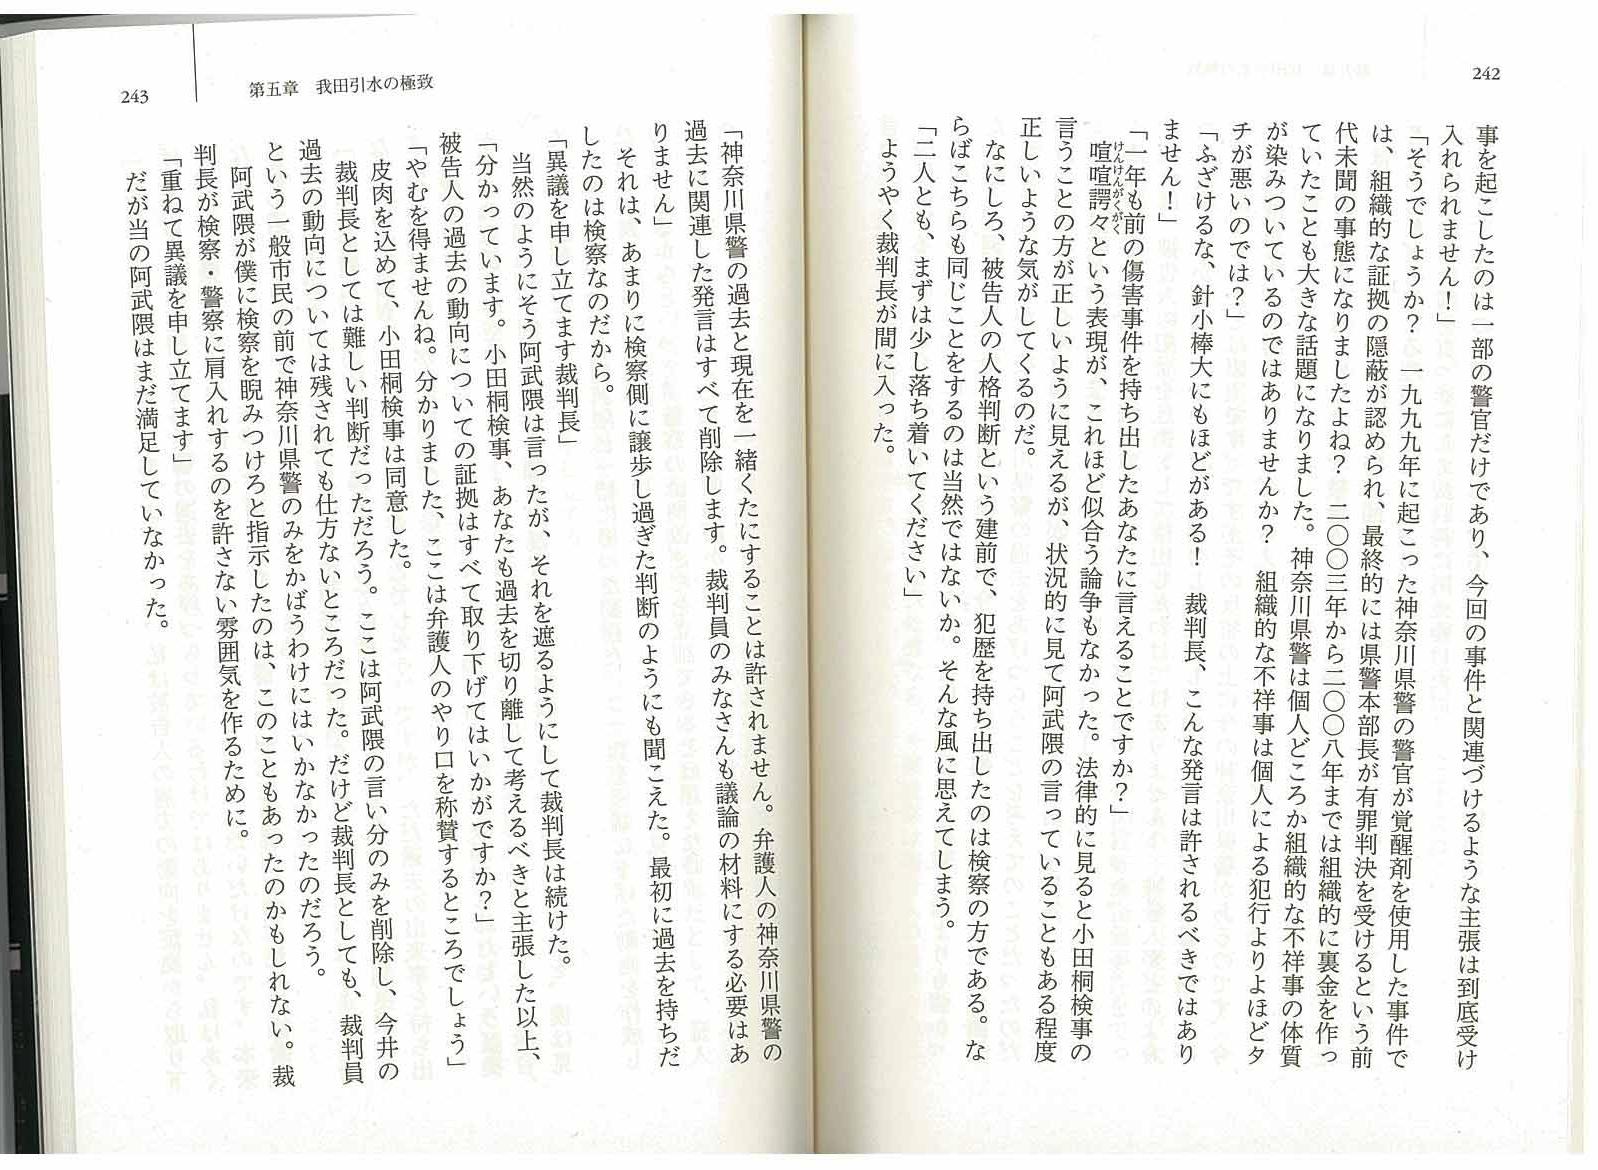 242
事を起こしたのは一部の警官だけであり、今回の事件と関連づけるような主張は到底受け
入れられません！」
「そうでしょうか？　一九九九年に起こった神奈川県警の警官が覚醒剤を使用した事件で
は、組織的な証拠の隠蔽が認められ、最終的には県警本部長が有罪判決を受けるという前
代未聞の事態になりましたよね？　二〇〇三年から二〇〇八年までは組織的に裏金を作っ
ていたことも大きな話題になりました。神奈川県警は個人どころか組織的な不祥事の体質
が染みついているのではありませんか？　組織的な不祥事は個人による犯行よりよほどタ
チが悪いのでは？」
「ふざけるな、針小棒大にもほどがある！　裁判長、こんな発言は許されるべきではあり
ません！」
「一年も前の傷害事件を持ち出したあなたに言えることですか？」
けんけんがくがく
喧喧諤々という表現が、これほど似合う論争もなかった。法律的に見ると小田桐検事の
言うことの方が正しいように見えるが、状況的に見て阿武隈の言っていることもある程度
正しいような気がしてくるのだ。
なにしろ、被告人の人格判断という建前で、犯歴を持ち出したのは検察の方である。な
らばこちらも同じことをするのは当然ではないか。そんな風に思えてしまう。
「二人とも、まずは少し落ち着いてください」
ようやく裁判長が間に入った。
243
第五章　我田引水の極致
「神奈川県警の過去と現在を一緒くたにすることは許されません。弁護人の神奈川県警の
過去に関連した発言はすべて削除します。裁判員のみなさんも議論の材料にする必要はあ
りません」
それは、あまりに検察側に譲歩し過ぎた判断のようにも聞こえた。最初に過去を持ちだ
したのは検察なのだから。
「異議を申し立てます裁判長」
当然のようにそう阿武隈は言ったが、それを遮るようにして裁判長は続けた。
「分かっています。小田桐検事、あなたも過去を切り離して考えるべきと主張した以上、
被告人の過去の動向についての証拠はすべて取り下げてはいかがですか？」
「やむを得ませんね。分かりました、ここは弁護人のやり口を称賛するところでしょう」
皮肉を込めて、小田桐検事は同意した。
裁判長としては難しい判断だっただろう。ここは阿武隈の言い分のみを削除し、今井の
過去の動向については残されても仕方ないところだった。だけど裁判長としても、裁判員
という一般市民の前で神奈川県警のみをかばうわけにはいかなかったのだろう。
阿武隈が僕に検察を睨みつけろと指示したのは、このこともあったのかもしれない。裁
判長が検察・警察に肩入れするのを許さない雰囲気を作るために。
「重ねて異議を申し立てます」
だが当の阿武隈はまだ満足していなかった。